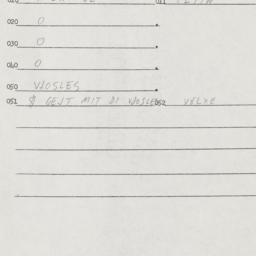 020 0
030 0
040 0
050 WOSLES
051 $ GEJT MIT DI WOSLES 052 VELXE